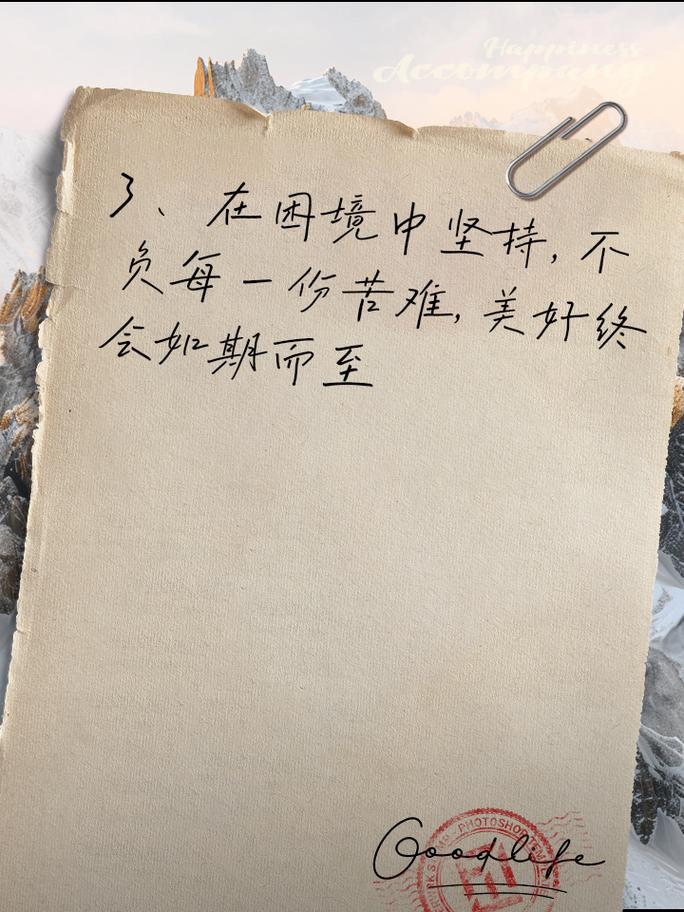 Happiness
Accompany
3、在困境中坚持，不
负每一份苦难，美好终
会如期而至
Goodlife
PHOTOSHOP